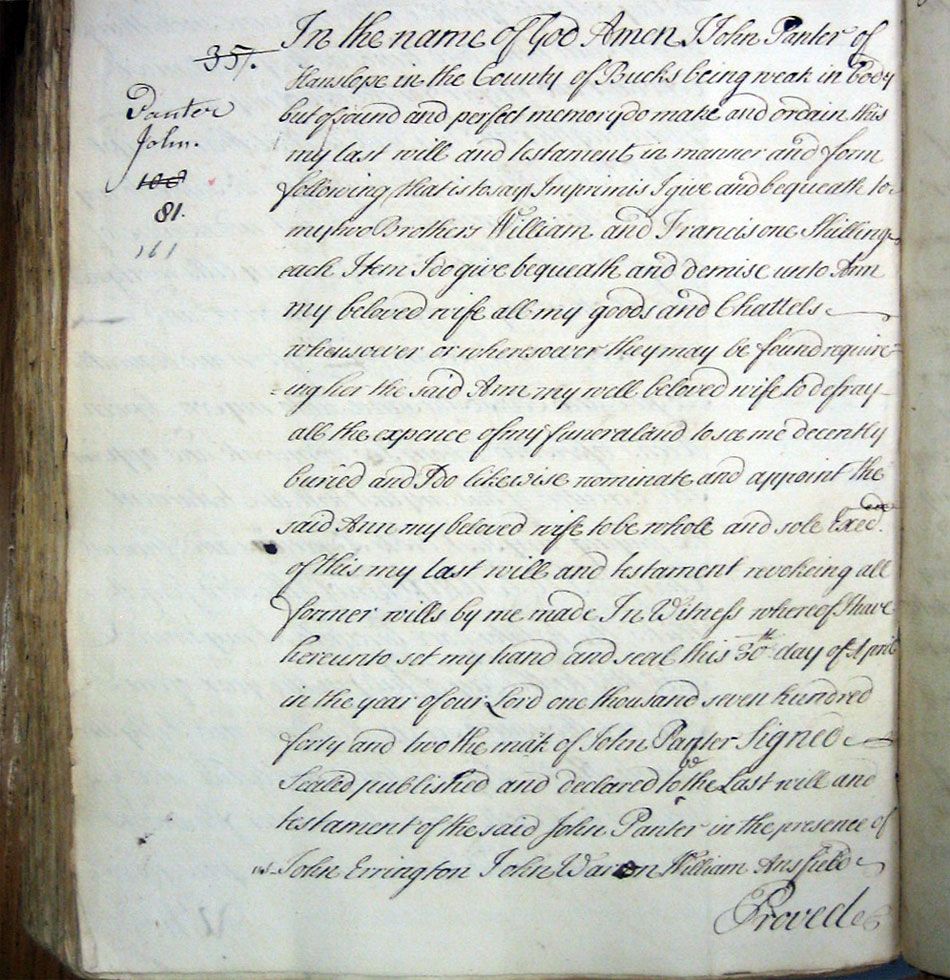 357.
Panter
John.
108
81.
161
In the name of God Amen I John Panter of
Hanslope in the County of Bucks being weak in body
but of sound and perfect memory do make and ordain this
my last will and testament in manner and form
following (that is to say) Imprimis I give and bequeath to
my two Brothers William and Francis one Shilling
each Item I do give bequeath and demise unto Ann
my beloved wife all my goods and Chattels
whensoever or wheresoever they may be found require=
=ing her the said Ann my well beloved wife to defray
all the expence of my funeral and to see me decently
buried and I do likewise nominate and appoint the
said Ann my beloved wife to be whole and sole Exec.
of this my last will and testament revokeing all
former wills by me made In Witness whereof I have
hereunto set my hand and seal this 30th day of April
in the year of our Lord one thousand seven hundred
forty and two the mark of John Panter Signed
Sealed published and declared to be the Last will and
testament of the said John Panter in the presence of
us John Errington John William Ansfield
Proved